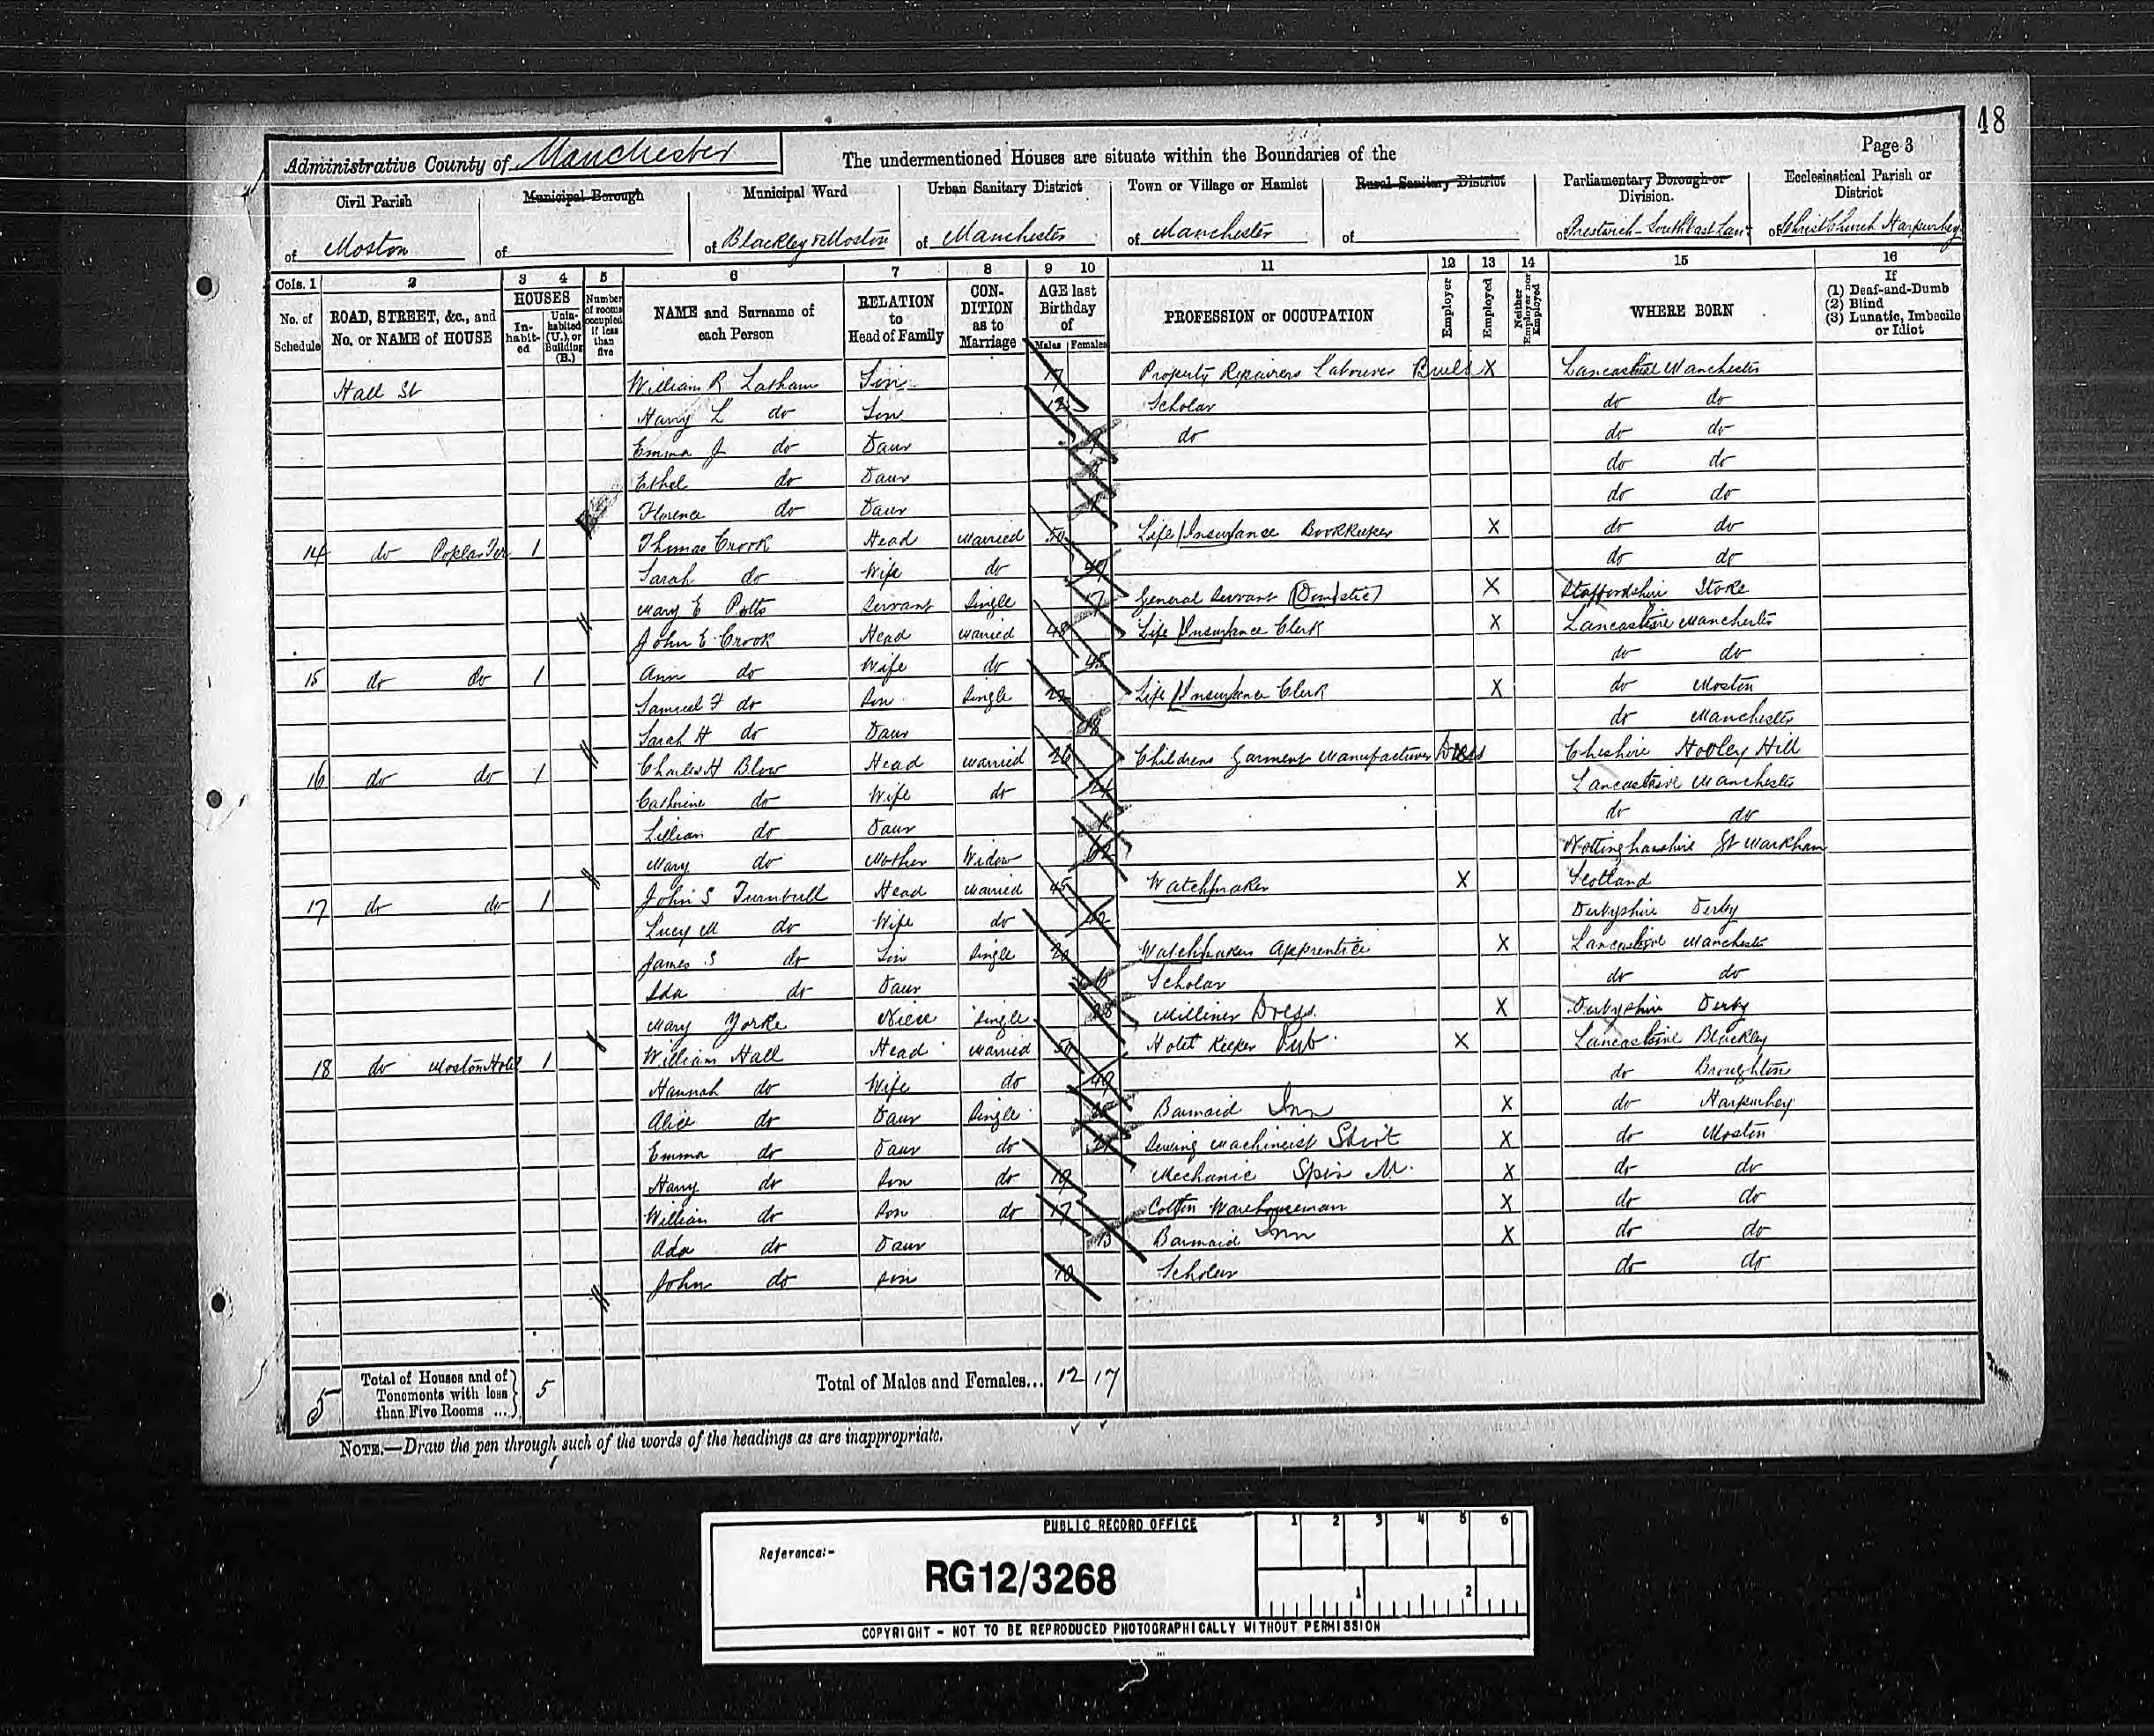 48
Administrative County of Manchester The undermentioned Houses are situate within the Boundaries of the Page 3
Civil Parish Municipal Borough Municipal Ward Urban Sanitary District Town or Village or Hamlet Rural Sanitary District Parliamentary Borough or Division. Ecclesiastical Parish or District
of Moston of of Blackley & Moston of Manchester of Manchester of of Prestwich - South East Lan of Christ Church Harpurhey
Cols. 1 2 3 4 5 6 7 8 9 10 11 12 13 14 15 16
No. of Schedule ROAD, STREET, &c., and No. or NAME of HOUSE HOUSES In-habit-ed Unin-habited (U.), or Building (B.) Number of rooms occupied if less than five NAME and Surname of each Person RELATION to Head of Family CON-DITION as to Marriage AGE last Birthday of Males Females PROFESSION or OCCUPATION Employer Employed Neither Employer nor Employed WHERE BORN If (1) Deaf-and-Dumb (2) Blind (3) Lunatic, Imbecile or Idiot
Hall St William R Latham Son Property Repairers Labourer X Lancashire Manchester
Harry L do Son 12 Scholar do do
Emma J do Daur do do do
Ethel do Daur do do
Florence do Daur do do
14 do Poplar Ter 1 Thomas Crook Head Married 50 Life Insurance Bookkeeper X do do
Sarah do Wife do 49 do do
Mary E Potts Servant Single 17 General Servant (Domestic) X Staffordshire Stoke
John E Crook Head Married 48 Life Insurance Clerk X Lancashire Manchester
15 do do 1 Ann do Wife do 45 do do
Samuel F do Son Single Life Insurance Clerk X do Moston
Sarah H do Daur 18 do Manchester
16 do do 1 Charles H Blow Head Married 26 Childrens Garment Manufacturer Dress Cheshire Hooley Hill
Catherine do Wife do 24 Lancashire Manchester
Lillian do Daur do do
Mary do Mother Widow Nottinghamshire Markham
17 do do 1 John S Turnbull Head Married 45 Watchmaker X Scotland
Lucy M do Wife do 42 Derbyshire Derby
James S do Son Single 20 Watchmakers Apprentice X Lancashire Manchester
Ida do Daur Scholar do do
Mary Yorke Niece Single 28 Milliner Dress X Derbyshire Derby
18 do Moston Hotel 1 William Hall Head Married 50 Hotel Keeper Pub X Lancashire Blackley
Hannah do Wife do 49 do Broughton
Alice do Daur Single Barmaid Inn X do Harpurhey
Emma do Daur do 21 Sewing Machineist Shirt X do Moston
Harry do Son do 19 Mechanic Spin M. X do do
William do Son do 17 Cotton Warehouseman X do do
Ada do Daur 13 Barmaid Inn X do do
John do Son 10 Scholar do do
5 Total of Houses and of Tenements with less than Five Rooms ... 5 Total of Males and Females... 12 17
NOTE.—Draw the pen through such of the words of the headings as are inappropriate.
PUBLIC RECORD OFFICE 1 2 3 4 5 6
Reference:-
RG12/3268
1 2
COPYRIGHT - NOT TO BE REPRODUCED PHOTOGRAPHICALLY WITHOUT PERMISSION